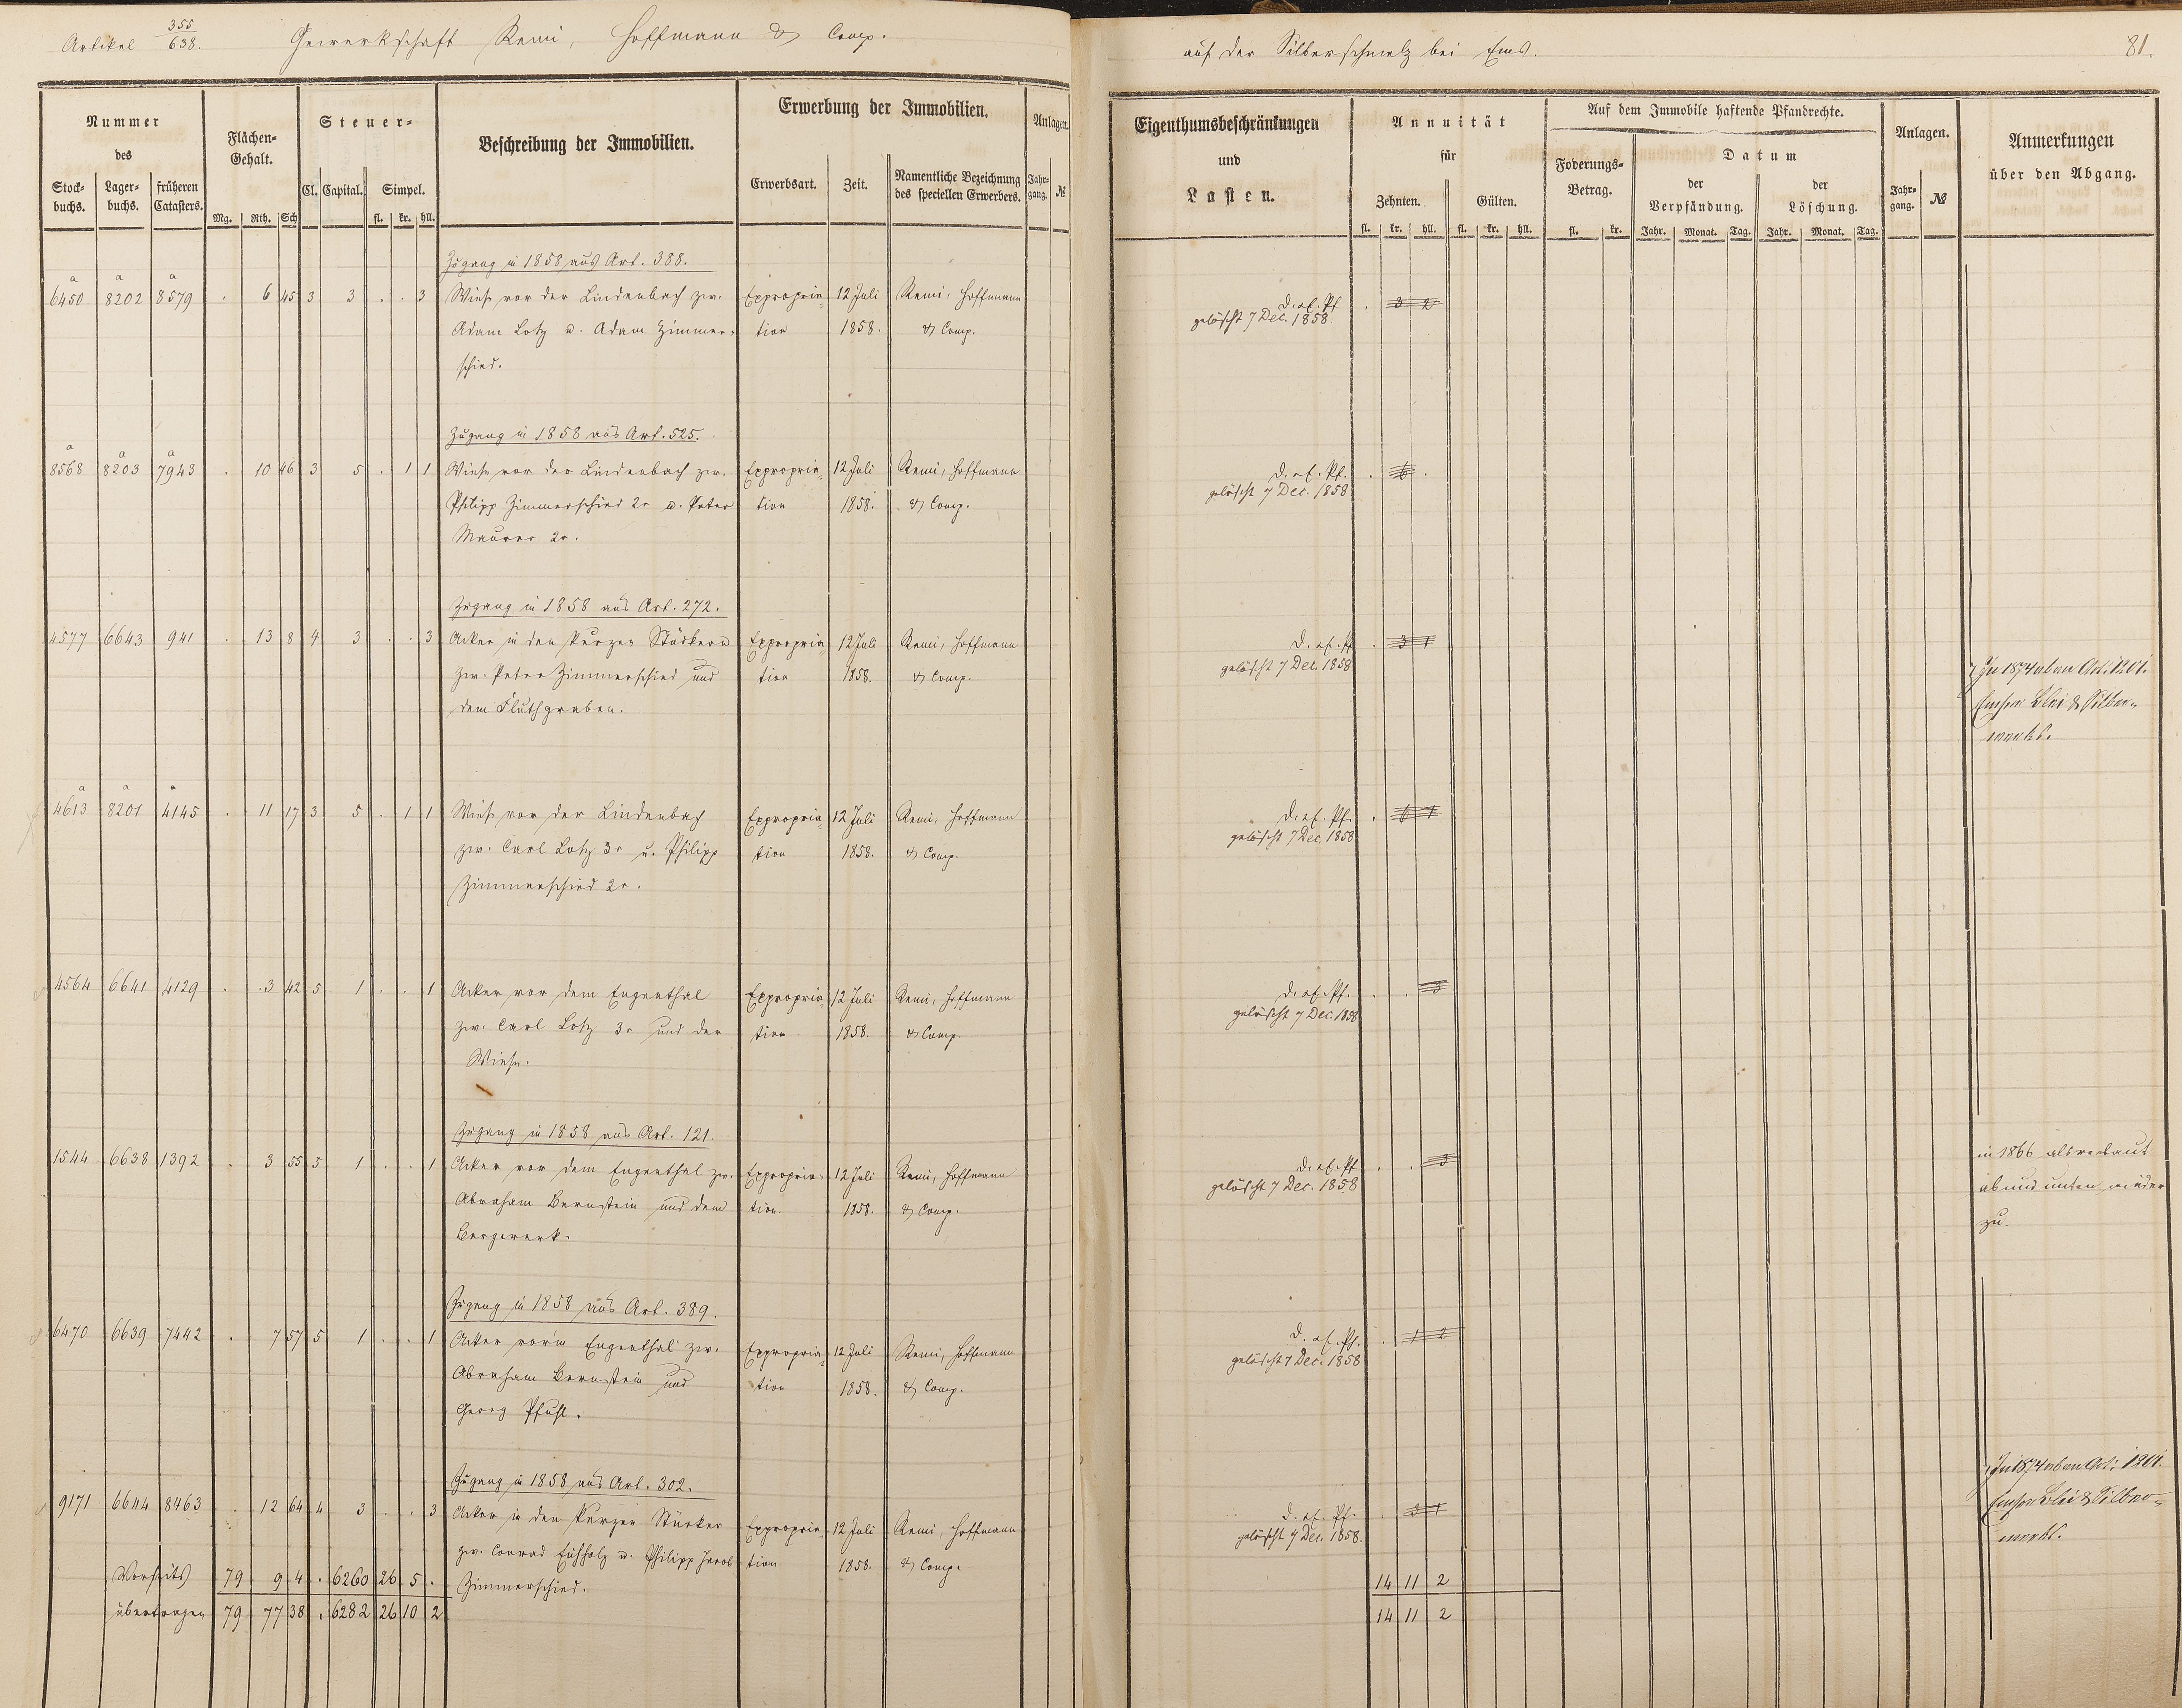 Artikel 355/638. Gewerkschaft Remi, Hoffmann & Comp. auf der Silberschmelz bei Ems. 81.
Nummer des
Stockbuchs. Lagerbuchs. früheren Catasters.
Flächen-Gehalt.
Mg. Rth. Sch
Steuer-
Cl. Capital. Simpel.
fl. kr. hll.
Beschreibung der Immobilien.
Erwerbung der Immobilien.
Erwerbsart. Zeit. Namentliche Bezeichnung des speciellen Erwerbers.
Anlagen.
Jahrgang. №
Eigenthumsbeschränkungen und Lasten.
Annuität für
Zehnten. Gülten.
fl. kr. hll. fl. kr. hll.
Auf dem Immobile haftende Pfandrechte.
Foderungs-Betrag.
fl. kr.
Datum
der Verpfändung. der Löschung.
Jahr. Monat. Tag. Jahr. Monat. Tag.
Anlagen.
Jahrgang. №
Anmerkungen über den Abgang.
Zugang in 1858 aus Art. 388.
a a a
6450 8202 8579 . 6 45 3 3 . . 3 Wiese vor der Lindenbach zw. Expropria- 12 Juli Remi, Hoffmann D. . Pf. . 3 2
Adam Lotz u. Adam Zimmer- tion 1858. & Comp. gelöscht 7 Dec. 1858.
schied.
Zugang in 1858 aus Art. 525.
a a a
8568 8203 7943 . 10 46 3 5 . 1 1 Wiese vor der Lindenbach zw. Expropria- 12 Juli Remi, Hoffmann D. . Pf. . 6 .
Philipp Zimmerschied 2r u. Peter tion 1858. & Comp. gelöscht 7 Dec. 1858
Maurer 2r.
Zugang in 1858 aus Art. 272.
4577 6643 941 . 13 8 4 3 . . 3 Acker in den kurzen Stücker zw. Expropria- 12 Juli Remi, Hoffmann D. . Pf. . 3 1
zw. Peter Zimmerschied und tion 1858. & Comp. gelöscht 7 Dec. 1858
dem Fluthgraben.
In 1874 Art. 1201.
Emser Blei & Silber-
werk.
a a a
4613 8201 4145 . 11 17 3 5 . 1 1 Wiese vor der Lindenbach Expropria- 12 Juli Remi, Hoffmann D. . Pf. . 6 1
zw. Carl Lotz 3r u. Philipp tion 1858. & Comp. gelöscht 7 Dec. 1858
Zimmerschied 2r.
4564 6641 4129 . 3 42 5 1 . . 1 Acker vor dem Engenthal Expropria- 12 Juli Remi, Hoffmann D. . Pf. . . 3
zw. Carl Lotz 3r und der tion 1858. & Comp. gelöscht 7 Dec. 1858
Wiese.
Zugang in 1858 aus Art. 121.
1544 6638 1392 . 3 55 5 1 . . 1 Acker vor dem Engenthal zw. Expropria- 12 Juli Remi, Hoffmann D. . Pf. . . 3 in 1866 als verbaut
Abraham Bernstein und dem tion. 1858. & Comp. gelöscht 7 Dec. 1858 ab und unten wieder
Bergwerk. zu.
Zugang in 1858 aus Art. 389.
6470 6639 7442 . 7 57 5 1 . . 1 Acker vor'm Engenthal zw. Expropria- 12 Juli Remi, Hoffmann D. . Pf. . 1 2
Abraham Bernstein und tion 1858. & Comp. gelöscht 7 Dec. 1858
Georg Pfuhl.
Zugang in 1858 aus Art. 302.
9171 6644 8463 . 12 64 4 3 . . 3 Acker in den kurzen Stücker Expropria- 12 Juli Remi, Hoffmann D. . Pf. . 3 1
zw. Conrad Eichholz u. Philipp Jacob tion 1858. & Comp. gelöscht 7 Dec. 1858.
Zimmerschied.
In 1874 Art. 1201.
Emser Blei & Silber-
werk.
Vorseits 79 9 4 . 6260 26 5 . 14 11 2
übertragen 79 77 38 . 6282 26 10 2 14 11 2